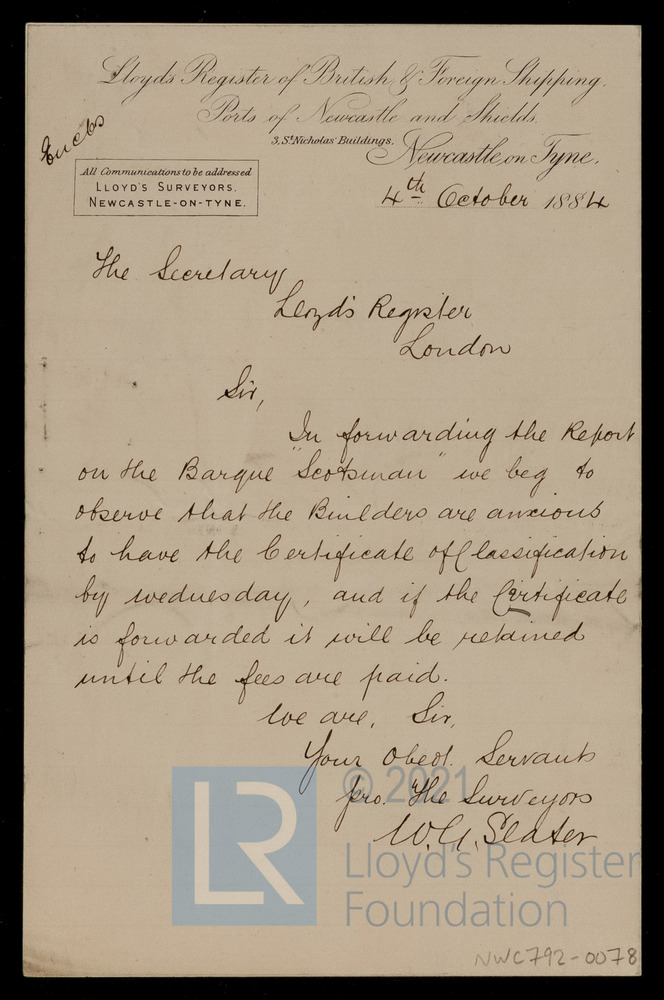 Lloyd's Register of British & Foreign Shipping.
Ports of Newcastle and Shields.
3, St Nicholas' Buildings,
Newcastle on Tyne,
Encls
All Communications to be addressed
LLOYD'S SURVEYORS.
NEWCASTLE-ON-TYNE.
4th October 1884
The Secretary
Lloyd's Register
London
Sir,
In forwarding the Report
on the Barque "Scotsman" we beg to
observe that the Builders are anxious
to have the Certificate of Classification
by wednesday, and if the Certificate
is forwarded it will be retained
until the fees are paid.
We are, Sir,
Your Obedt. Servants
pro. The Surveyors
W. G. Slater
© 2021
LR
Lloyd's Register
Foundation
NWC792-0078